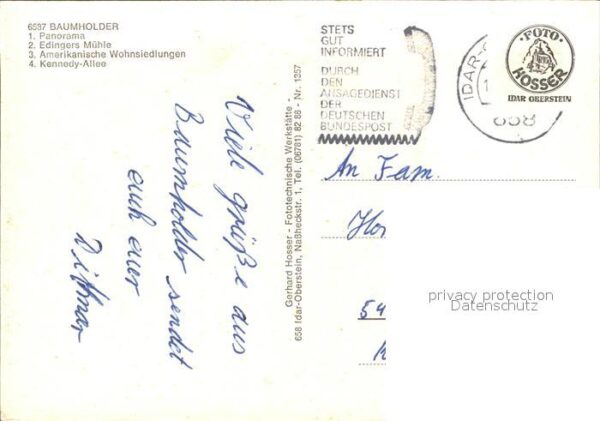 6587 BAUMHOLDER
1. Panorama
2. Edingers Mühle
3. Amerikanische Wohnsiedlungen
4. Kennedy-Allee
Viele grüße aus
Baumholder sendet
euch euer
Dittmar
Gerhard Hosser - Fototechnische Werkstätte -
658 Idar-Oberstein, Naßheckstr. 1, Tel. (06781) 82 88 - Nr. 1357
STETS
GUT
INFORMIERT
DURCH
DEN
ANSAGEDIENST
DER
DEUTSCHEN
BUNDESPOST
IDAR-
658
FOTO
HOSSER
IDAR OBERSTEIN
An Fam.
Ho
54
privacy protection
Datenschutz